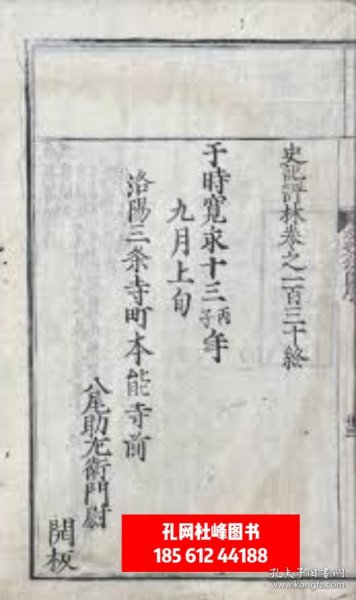 史記評林卷之一百三十終
于時寬永十三丙子年
九月上旬
洛陽三条寺町本能寺前
八尾助左衛門尉
開板
孔网杜峰图书
185 612 44188
孔夫子旧书网
www.kongfz.com